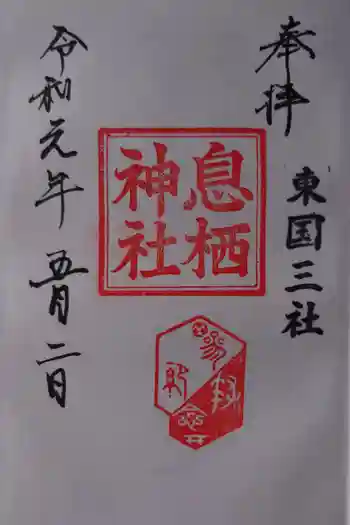 奉拝
東国三社
息栖
神社
令和元年五月二日